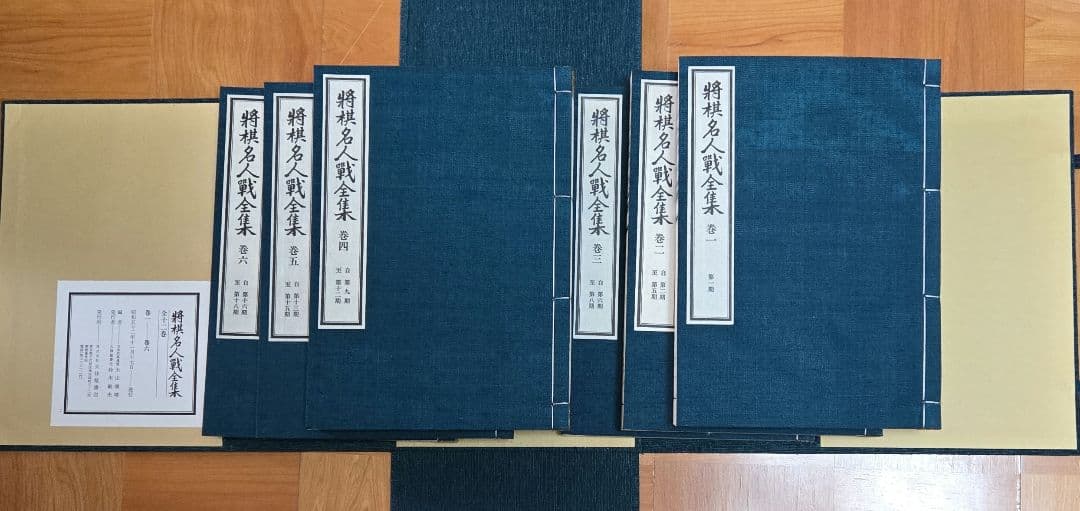 將棋名人戰全集
卷一
第一期
將棋名人戰全集
卷二
自 第二期
至 第五期
將棋名人戰全集
卷三
自 第六期
至 第八期
將棋名人戰全集
卷四
自 第九期
至 第十二期
將棋名人戰全集
卷五
自 第十三期
至 第十五期
將棋名人戰全集
卷六
自 第十六期
至 第十八期
將棋名人戰全集
全十二卷
卷一——卷六